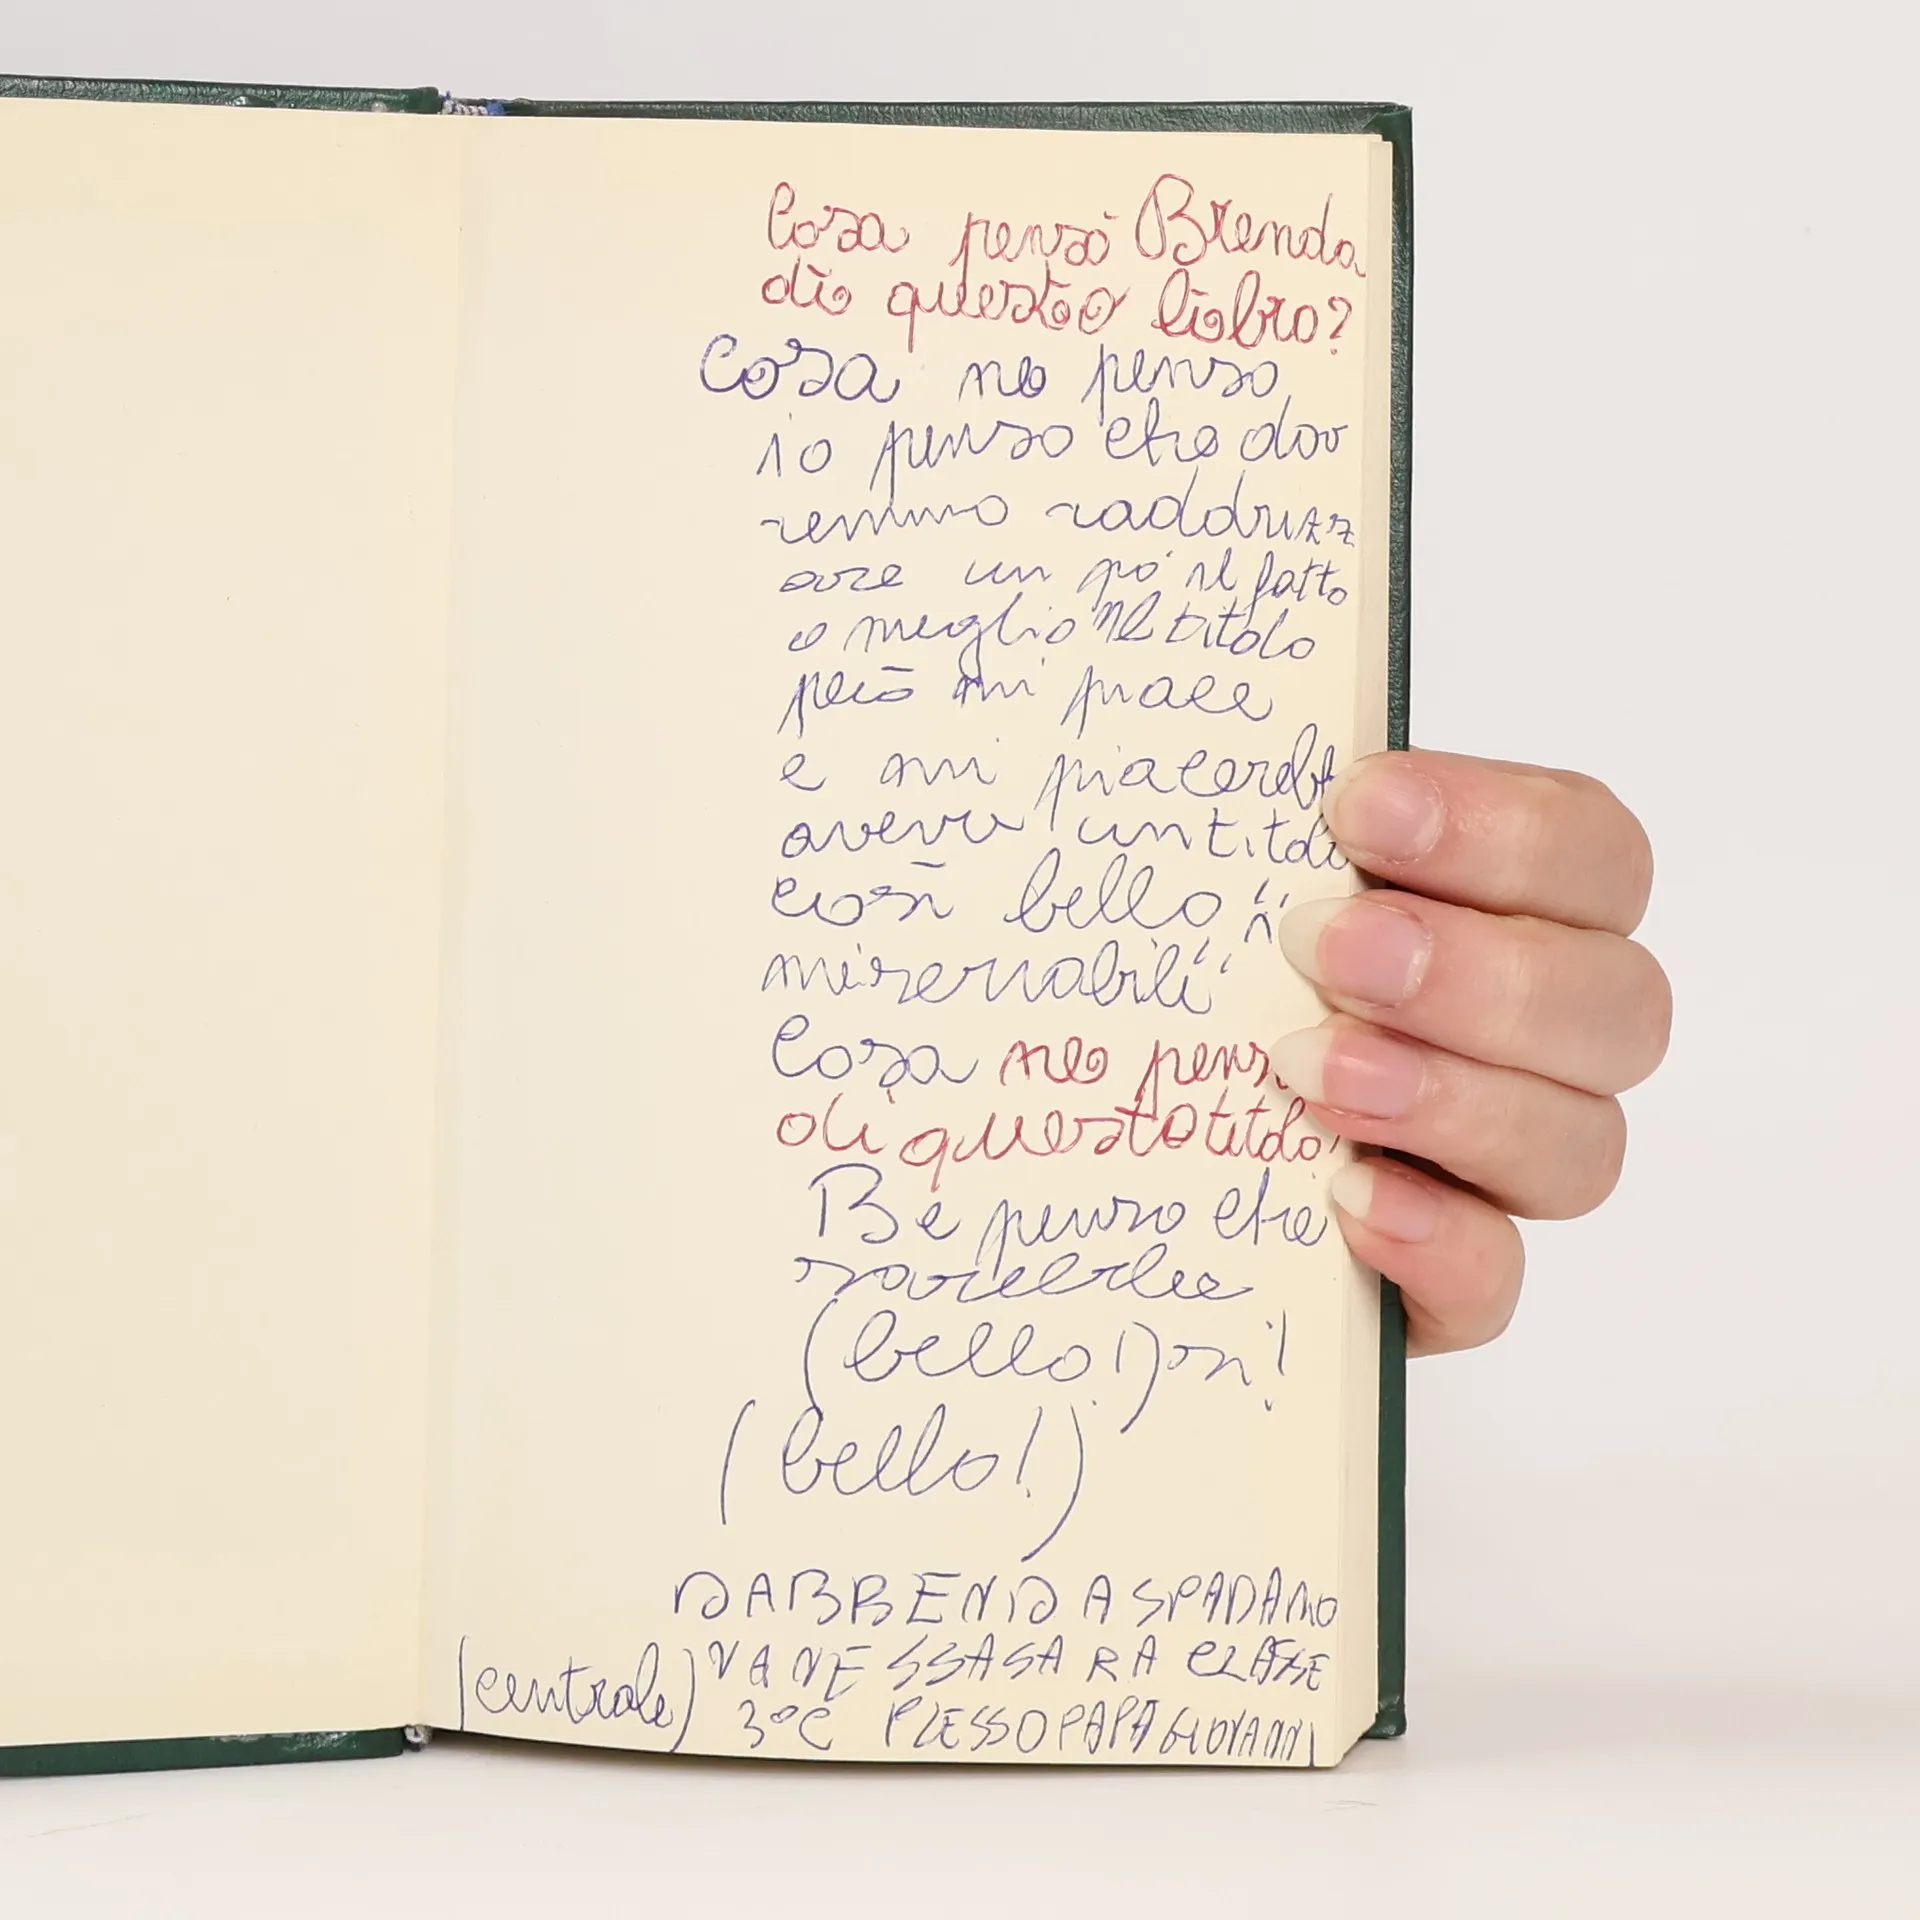 Cosa pensò Brenda
di questo libro?
Cosa ne penso
io penso che dov
remmo raddrizz
are un pò il fatto
o meglio il titolo
però mi piace
e mi piacereb
avere un titolo
così bello "i
miserabili"
Cosa ne pens
di questo titolo?
Be penso che
sarebbe
(bello!) on!
(bello!)
DA BRENDA SPADARO
VANESSA SARA CLASSE
(centrale) 3°C PLESSO PAPA GIOVANNI